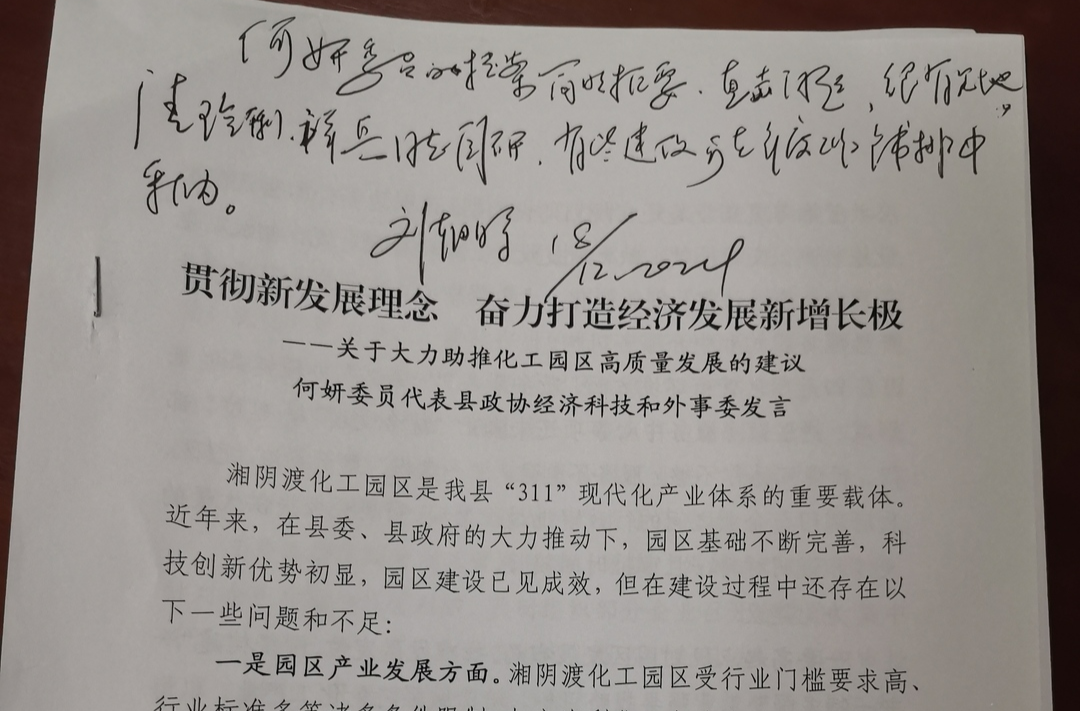 何妍委员的提案简明扼要、直击问题，很有见地，
请 祥兵 同研，有些建议可在年度工作铺排中
采纳。
刘 18/12.2024
贯彻新发展理念 奋力打造经济发展新增长极
——关于大力助推化工园区高质量发展的建议
何妍委员代表县政协经济科技和外事委发言
湘阴渡化工园区是我县“311”现代化产业体系的重要载体。
近年来，在县委、县政府的大力推动下，园区基础不断完善，科
技创新优势初显，园区建设已见成效，但在建设过程中还存在以
下一些问题和不足：
一是园区产业发展方面。湘阴渡化工园区受行业门槛要求高、
行业标准多等诸多条件限制